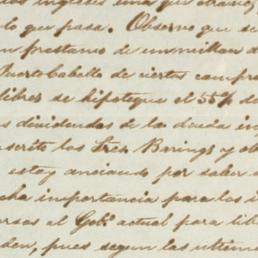 dos ingleses
lo que pasa. Observo que se
prestamo de un millon d
Puerto Cabello de ciertos compra
libres se hipoteque el 55% de
s dividendos de la deuda in
scrito los Sres Barings y ob
estoy anciando por saber
cha importancia para los i
al Gobo actual para lib
den, pues segun las ultima